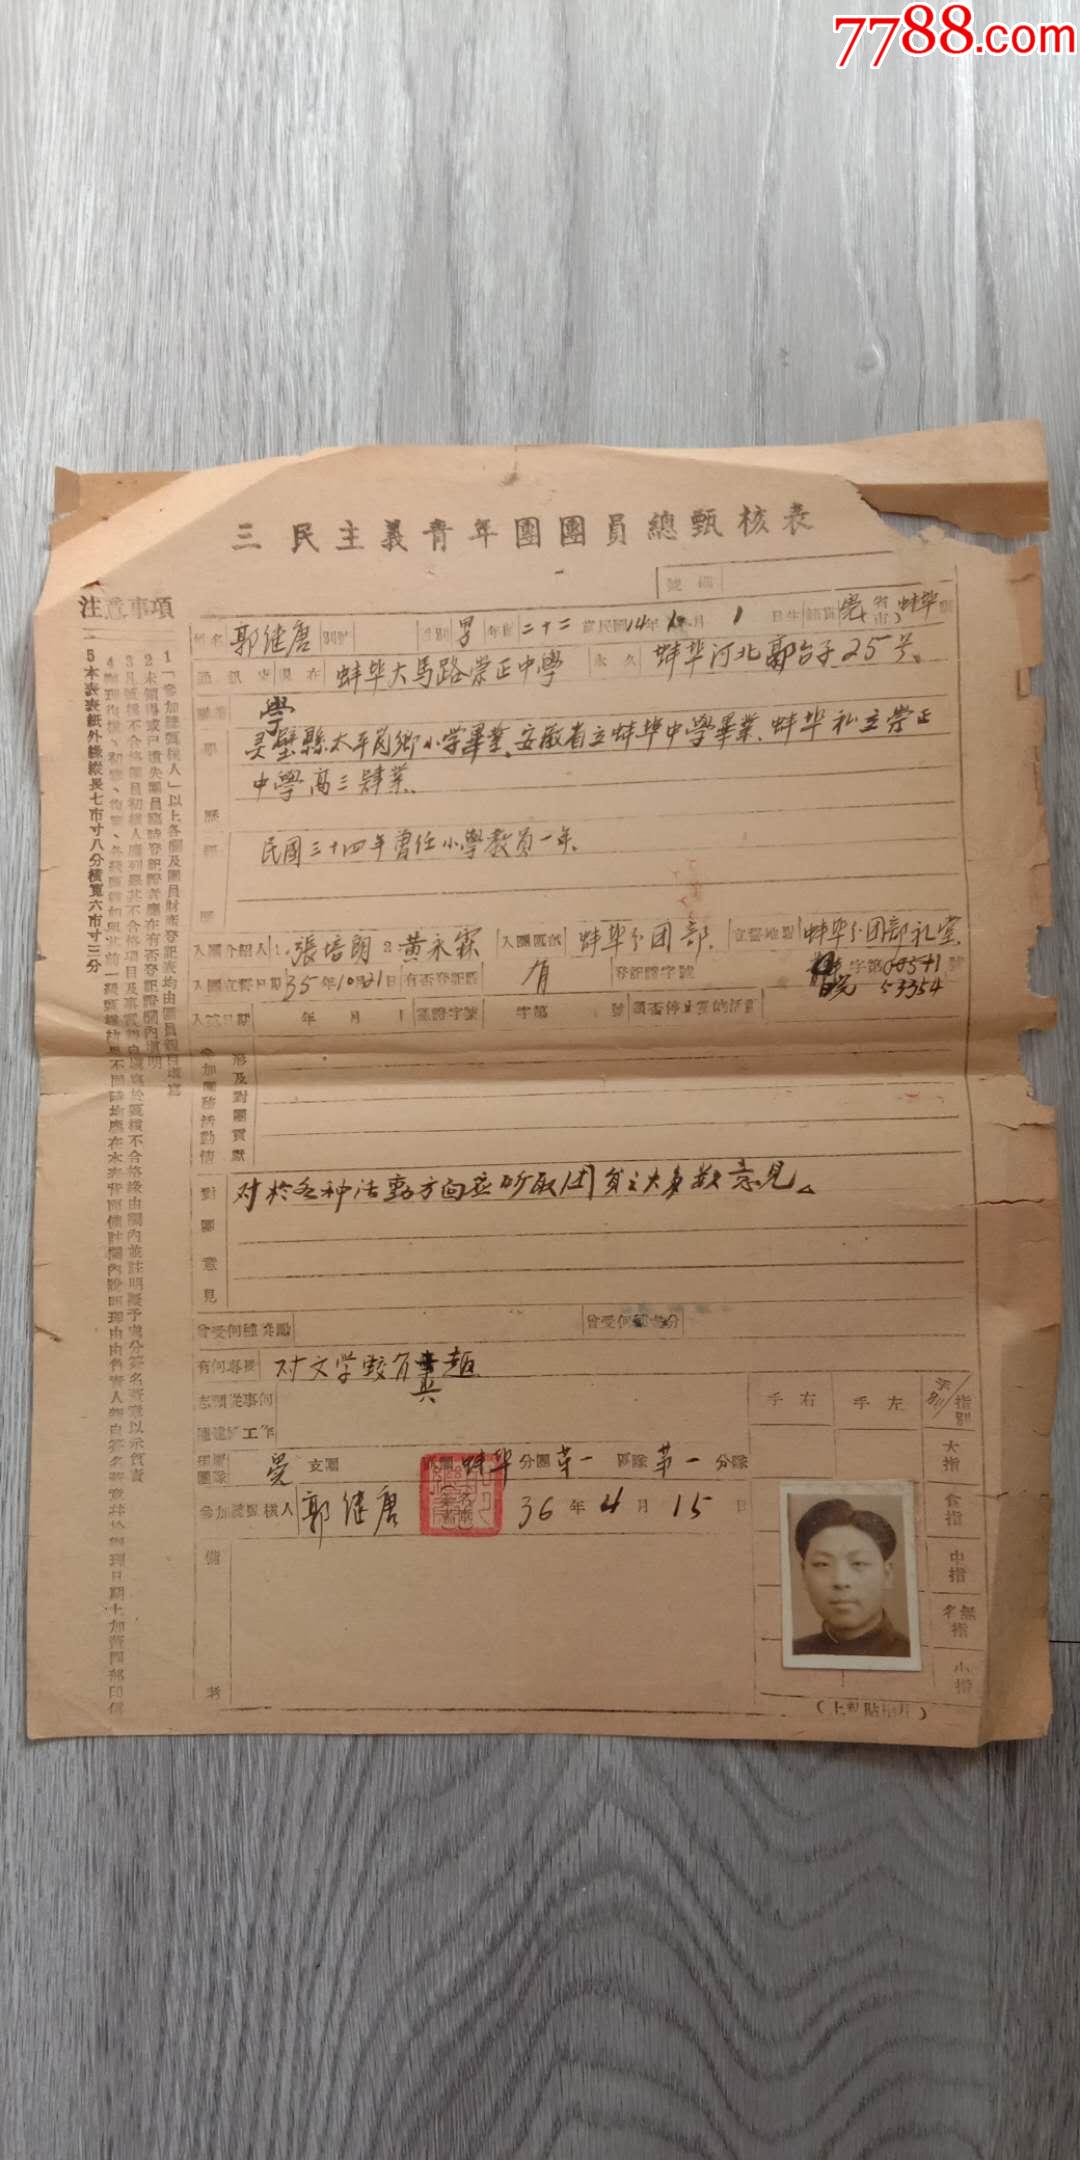 7788.com
三民主義青年團團員總甄核表
號備
姓名 郭継唐 別號 性別 男 年齡 二十二 當民國14年1月1日生 籍貫 皖省市 蚌埠縣
通訊處 現在 蚌埠大馬路崇正中學 永久 蚌埠河北郭台子25号、
學歷 灵壁縣太平崗鄉小学畢業、安徽省立蚌埠中學畢業、蚌埠私立崇正
中學高三肄業、
經歷 民國三十四年曾任小學教員一年、
入團介紹人 1.張培朗 2.黄永霖 入團區部 蚌埠分团部、 宣誓地點 蚌埠分团部礼堂、
入團宣誓日期 35年10月21日 有否登記證 有 登記證字號 皖字第 53354 號
入黨日期 年 月 日 黨證字號 字第 號 曾否停止黨的活動
參加團務活動情形及對團貢獻
對團意見 对於各种活動方向应听取团員之大多数意見。
曾受何種獎勵 曾受何種處分
有何專長 对文学較有興趣
志願從事何種建設工作
現屬團隊 皖支團 蚌埠分團第一區隊第一分隊
參加總甄核人 郭継唐 36年4月15日
備考
右手 左手 指別
大指
食指
中指
無名指
小指
(上報貼相片)
注意事項
1「參加總甄核人」以上各欄及團員財產登記表均由團員親自填寫
2未領得或已遺失團員臨時登記證者應在有否登記證欄內填明
5本表表紙外緣縱長七市寸八分橫寬六市寸三分